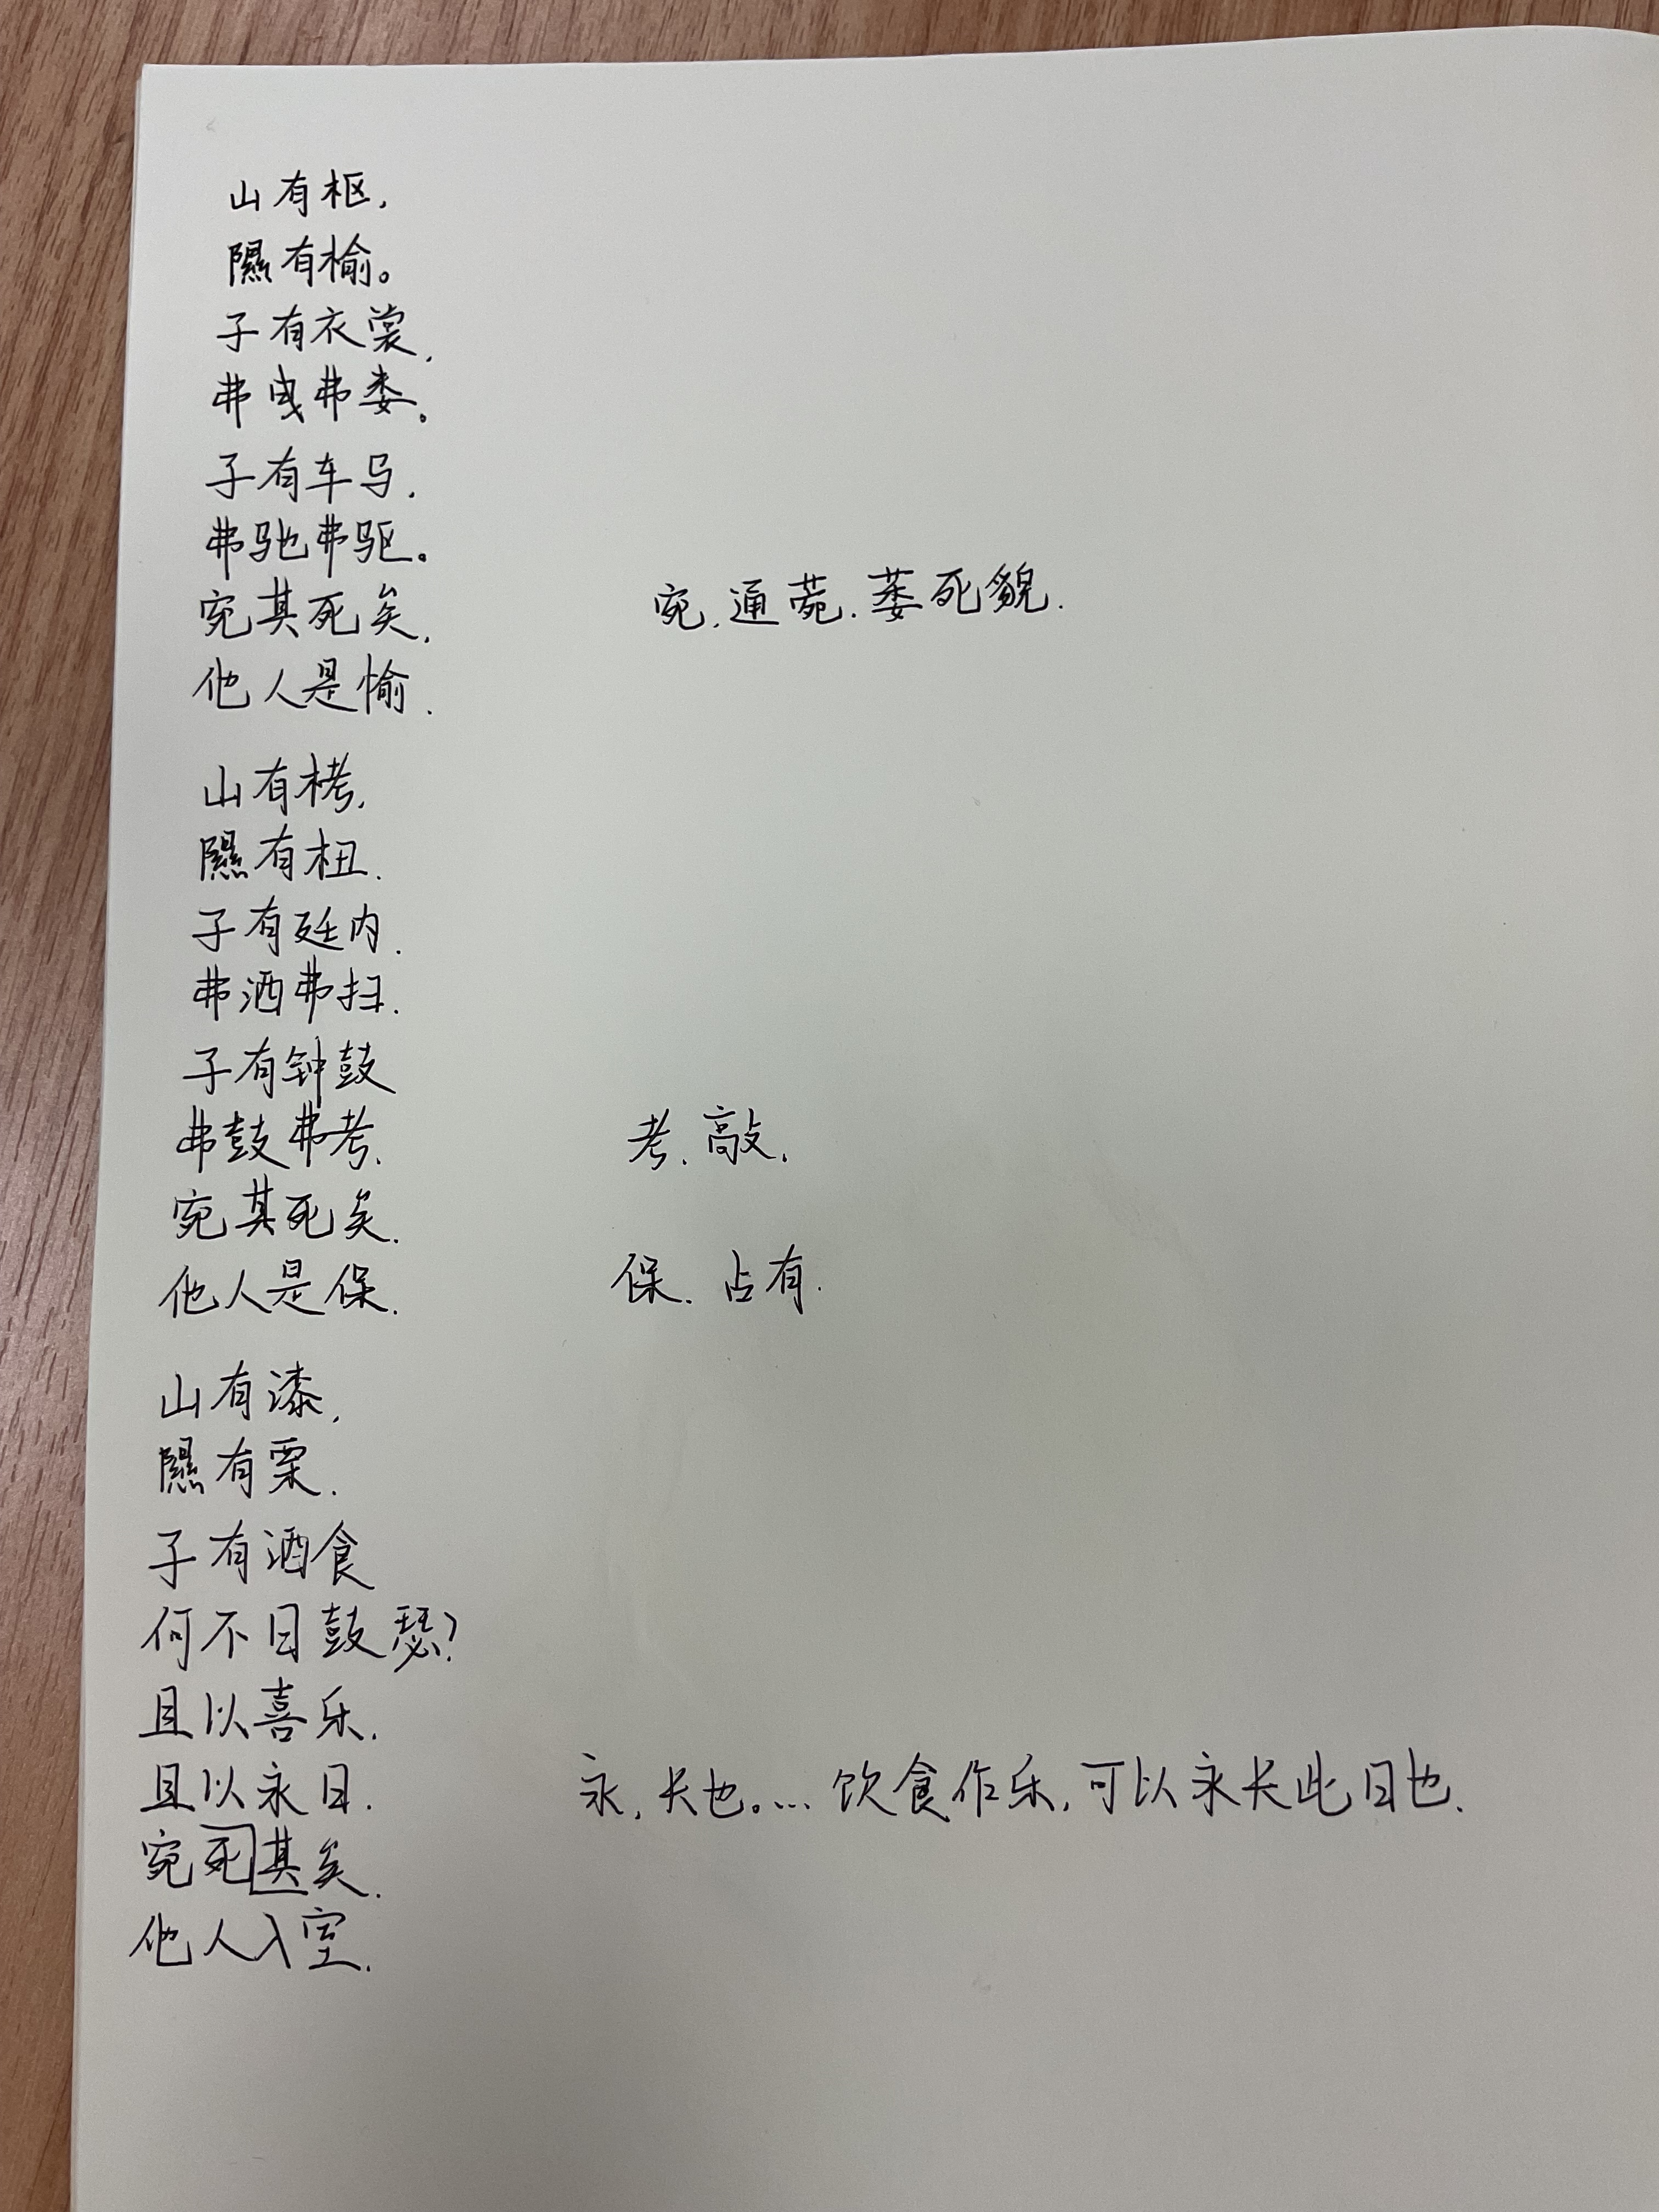 山有枢,
隰有榆。
子有衣裳,
弗曳弗娄。
子有车马.
弗驰弗驱。
宛其死矣, 宛.通菀.萎死貌.
他人是愉.
山有栲,
隰有杻.
子有廷内.
弗洒弗扫.
子有钟鼓
弗鼓弗考. 考.敲.
宛其死矣.
他人是保. 保.占有.
山有漆,
隰有栗.
子有酒食
何不日鼓瑟?
且以喜乐.
且以永日. 永,长也。...饮食作乐,可以永长此日也.
宛死其矣.
他人入室.